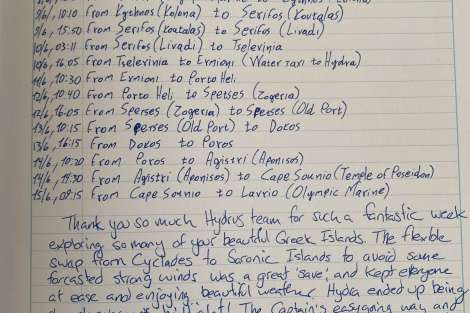 9/6, 10:10 From Kythnos (Kolona) to Serifos (Koutalas)
9/6, 15:50 From Serifos (Koutalas) to Serifos (Livadi)
10/6, 03:11 From Serifos (Livadi) to Tselevinia
10/6, 16:05 From Tselevinia to Ermioni (Water taxi to Hydra)
11/6, 10:30 From Ermioni to Porto Heli
12/6, 10:40 From Porto Heli to Spetses (Zogeria)
12/6, 16:05 From Spetses (Zogeria) to Spetses (Old Port)
13/6, 10:15 From Spetses (Old Port) to Dokos
13/6, 16:15 From Dokos to Poros
14/6, 10:20 From Poros to Agistri (Aponisos)
14/6, 14:30 From Agistri (Aponisos) to Cape Sounio (Temple of Poseidon)
15/6, 08:15 From Cape Sounio to Lavrio (Olympic Marine)
Thank you so much Hydrus team for such a fantastic week
exploring so many of your beautiful Greek Islands. The flexible
swap from Cyclades to Saronic Islands to avoid some
forcasted strong winds was a great 'save', and kept everyone
at ease and enjoying beautiful weather. Hydra ended up being
The Captain's easygoing way and